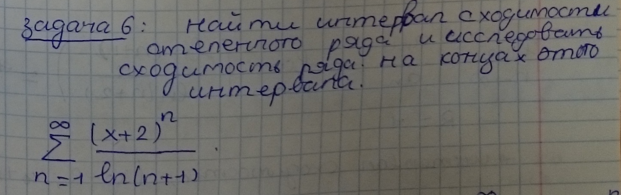 Задача 6: Найти интервал сходимости
степенного ряда и исследовать
сходимость ряда на концах этого
интервала.
∞
∑ (x+2)^n / ln(n+1).
n=1